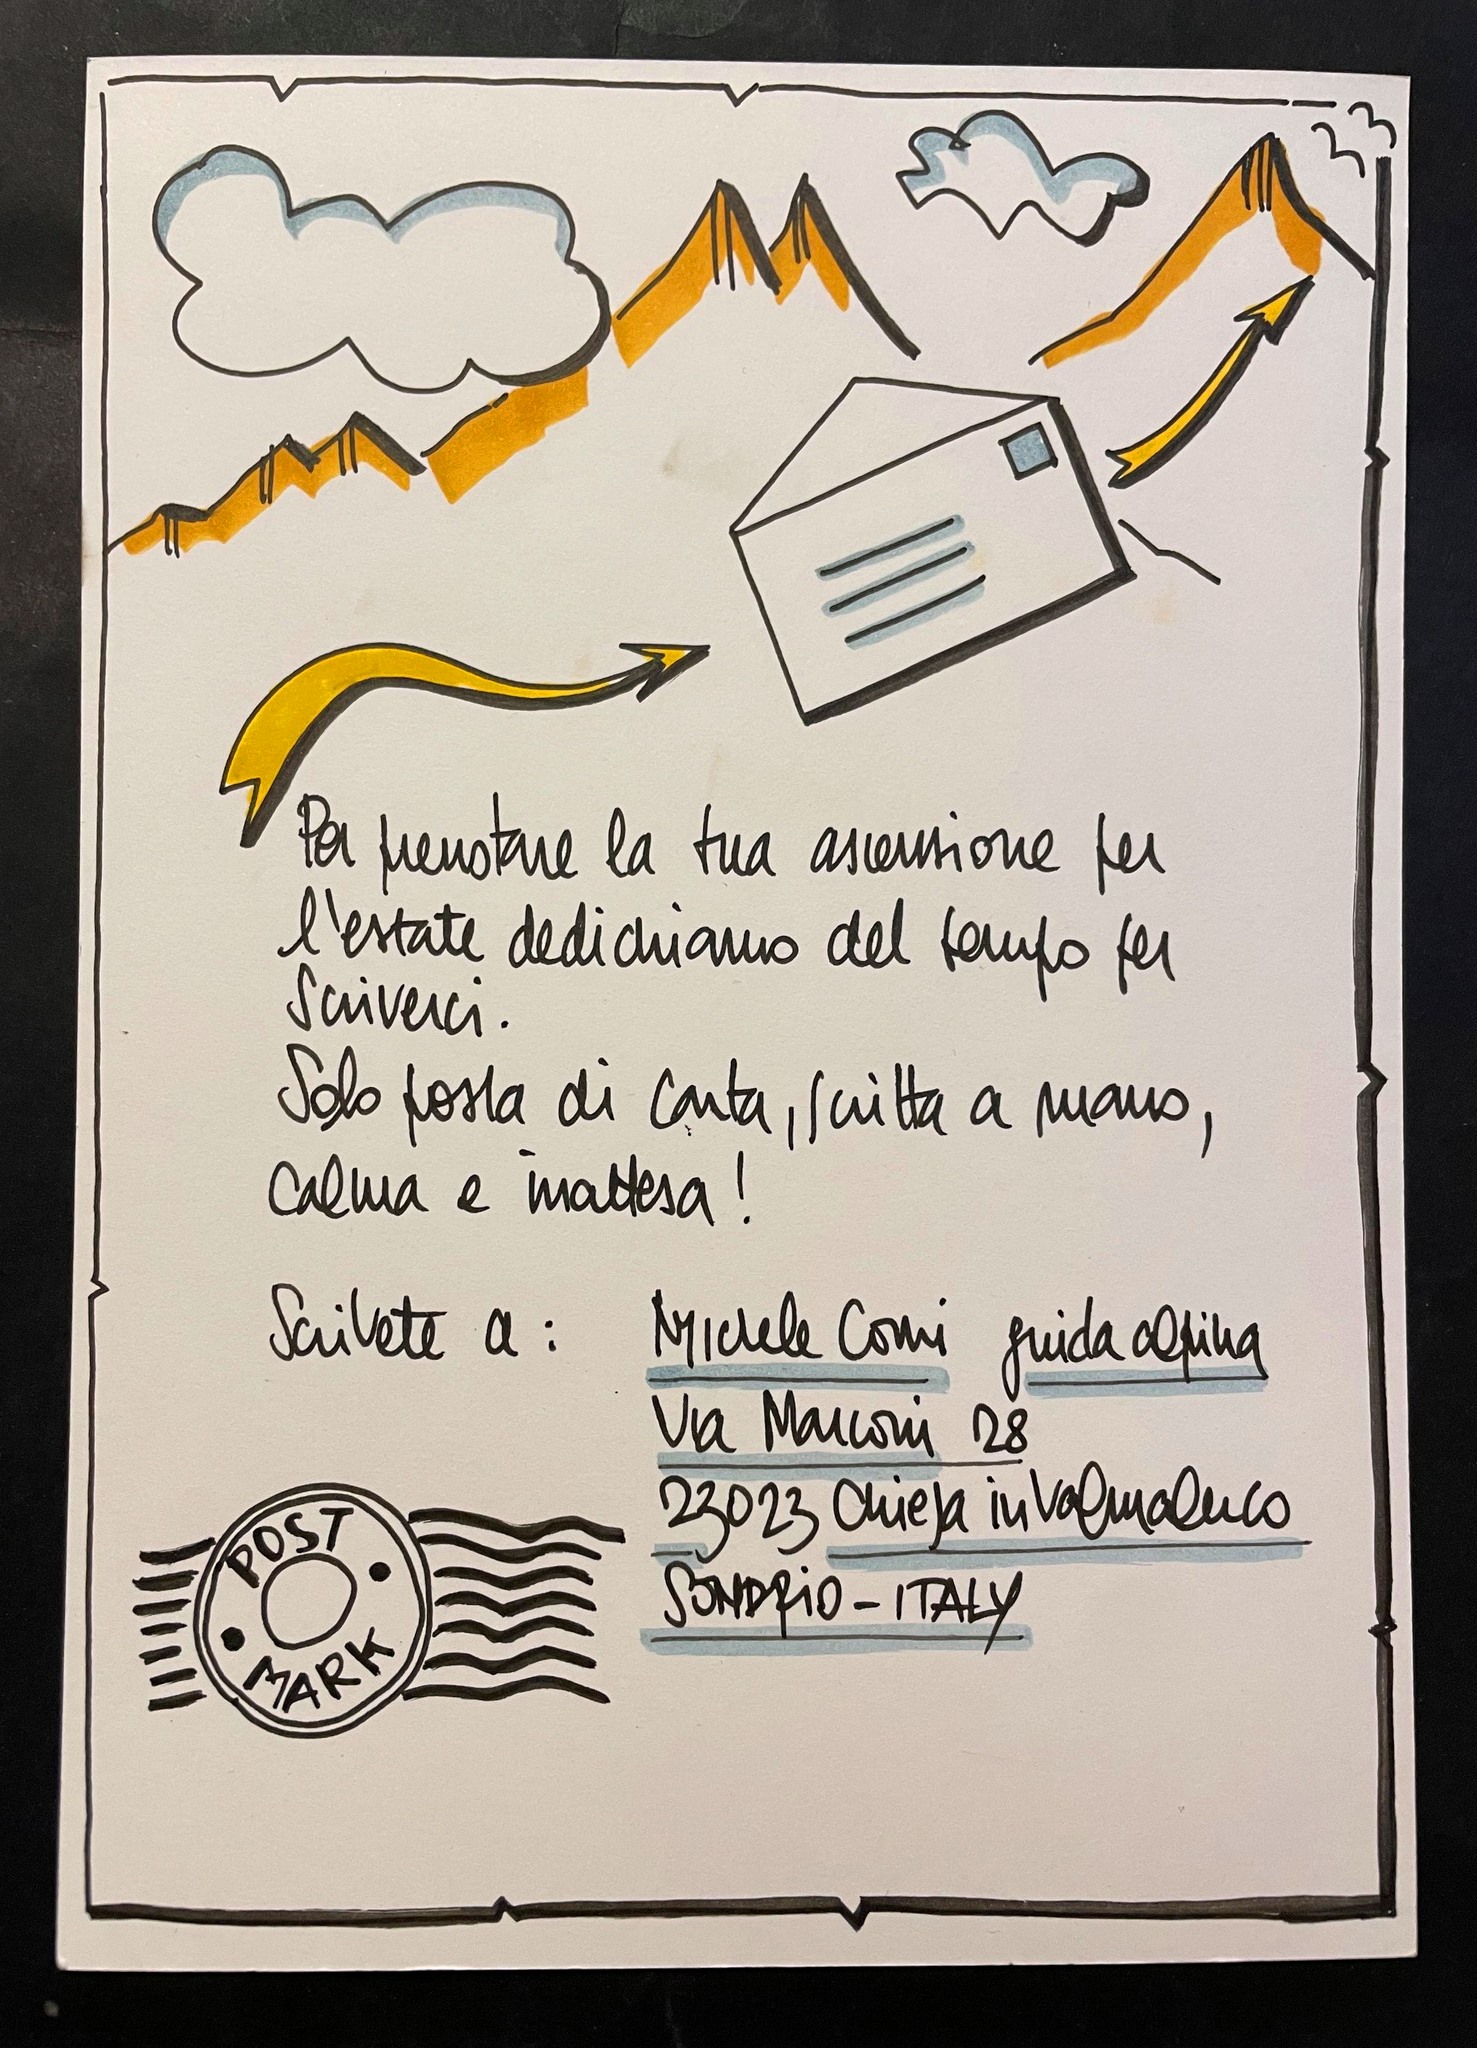 Per prenotare la tua ascensione per
l'estate dedichiamo del tempo per
scriverci.
Solo posta di carta, scritta a mano,
calma e inattesa!
Scrivete a: Michele Comi guida alpina
Via Marconi 28
23023 Chiesa in Valmalenco
SONDRIO - ITALY
POST
MARK